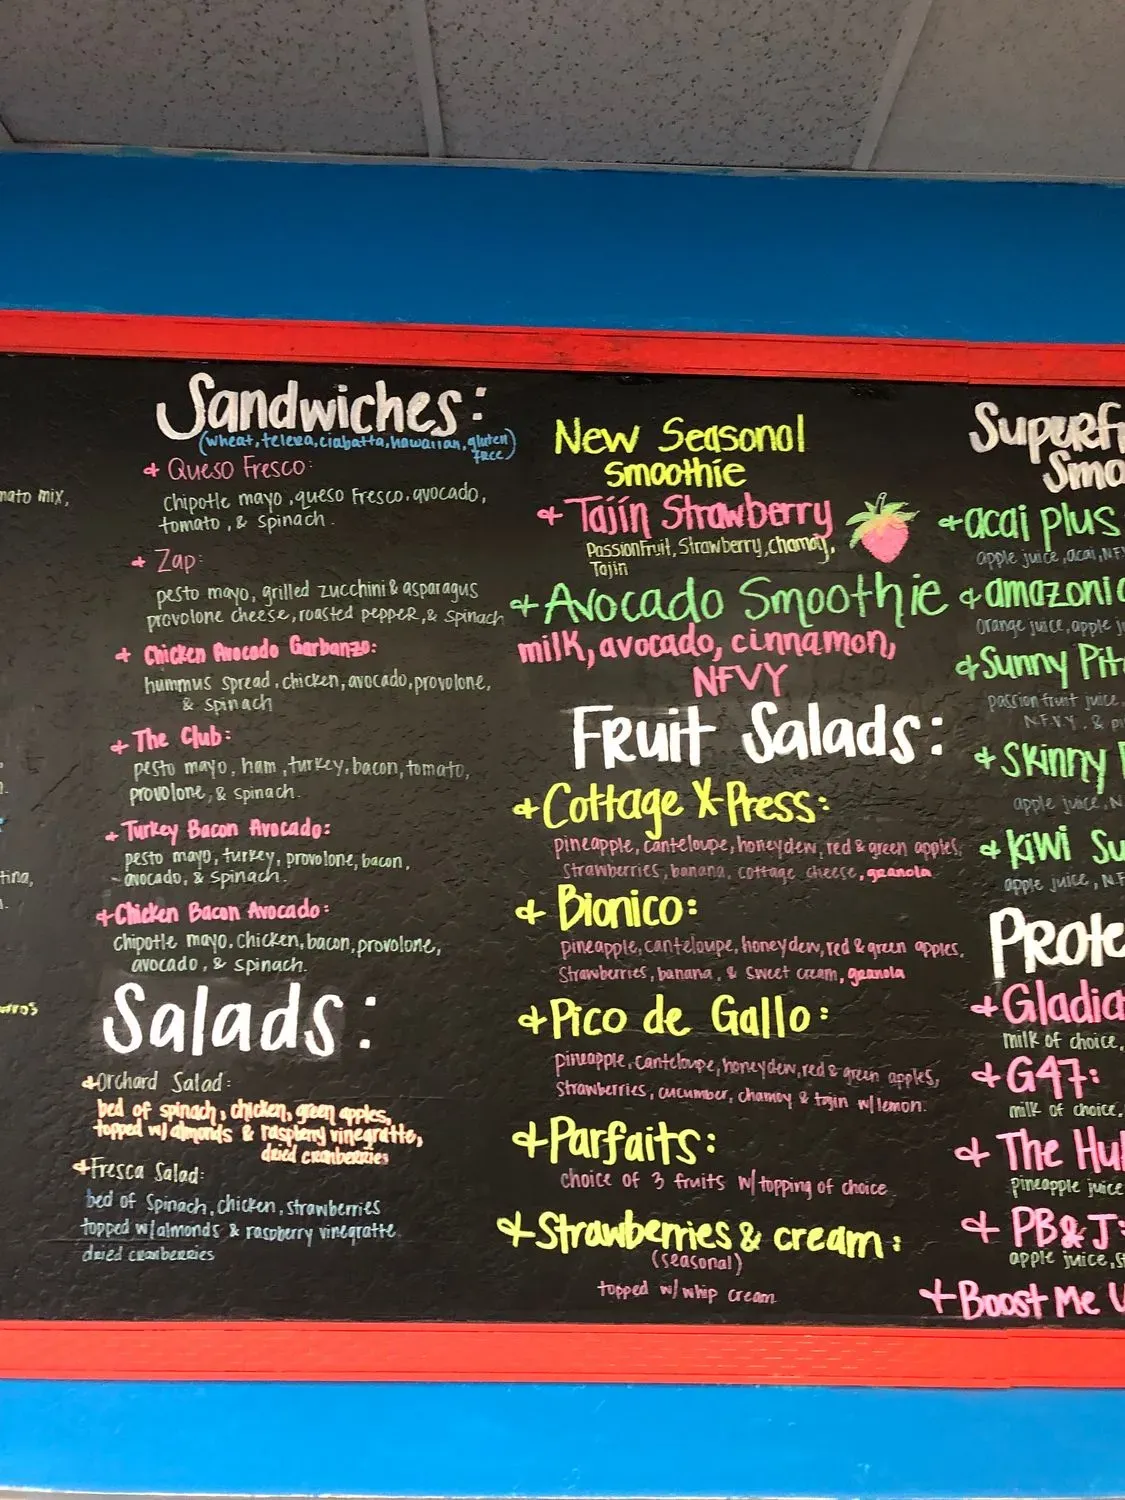 nato mix,
tina,
urros
Sandwiches:
(wheat, telera, ciabatta, hawaiian, gluten
free)
+ Queso Fresco:
chipotle mayo, queso fresco, avocado,
tomato, & spinach.
+ Zap:
pesto mayo, grilled zucchini & asparagus
provolone cheese, roasted pepper, & spinach
+ Chicken Avocado Garbanzo:
hummus spread, chicken, avocado, provolone,
& spinach
+ The Club:
pesto mayo, ham, turkey, bacon, tomato,
provolone, & spinach.
+ Turkey Bacon Avocado:
pesto mayo, turkey, provolone, bacon,
avocado, & spinach.
+ Chicken Bacon Avocado:
chipotle mayo, chicken, bacon, provolone,
avocado, & spinach.
Salads:
+ Orchard Salad:
bed of spinach, chicken, green apples,
topped w/ almonds & raspberry vinegratte,
dried cranberries
+ Fresca Salad:
bed of spinach, chicken, strawberries
topped w/ almonds & raspberry vinegratte
dried cranberries
New Seasonal
Smoothie
+ Tajín Strawberry
Passionfruit, Strawberry, chamoy,
Tajin
+ Avocado Smoothie
milk, avocado, cinnamon,
NFVY
Fruit Salads:
+ Cottage X-Press:
pineapple, canteloupe, honeydew, red & green apples,
strawberries, banana, cottage cheese, granola
+ Bionico:
pineapple, canteloupe, honeydew, red & green apples,
strawberries, banana, & sweet cream, granola
+ Pico de Gallo:
pineapple, canteloupe, honeydew, red & green apples,
strawberries, cucumber, chamoy & tajin w/ lemon.
+ Parfaits:
choice of 3 fruits w/ topping of choice
+ Strawberries & cream:
(seasonal)
topped w/ whip cream
Superf
Smo
+ acai plus
apple juice, acai, NF
+ amazonic
orange juice, apple j
+ Sunny Pit
passion fruit juice,
N.F.V.Y. & p
+ Skinny
apple juice, N
+ Kiwi Su
apple juice, N.F
Prote
+ Gladia
milk of choice,
+ G47:
milk of choice,
+ The Hul
pineapple juice
+ PB&J:
apple juice, s
+ Boost Me U